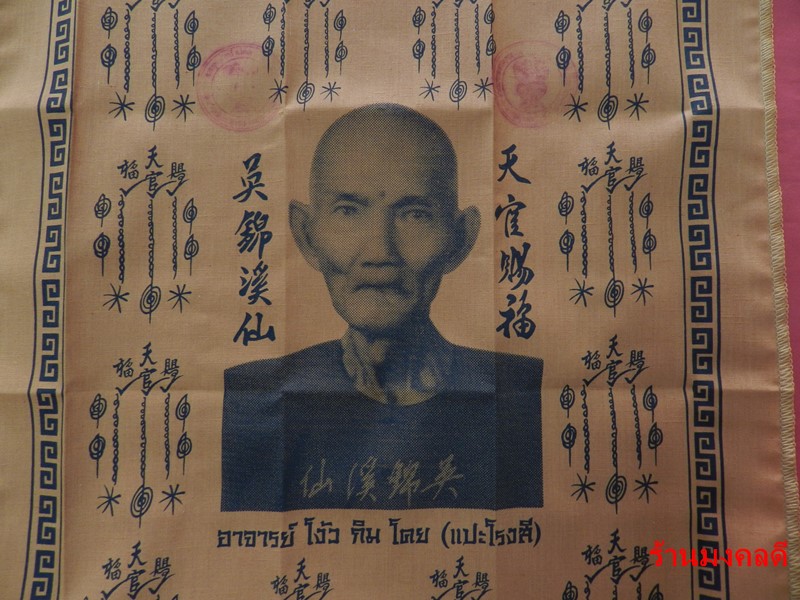 天
福官賜
天
福官賜
天官賜福
吳錦溪仙
天
福官賜
天
福官賜
仙溪錦吳
อาจารย์ โง้ว กิม โคย (แปะโรงสี)
天
福官賜
天
福官賜
天
福官賜
天
福官賜
ร้านมงคลดี